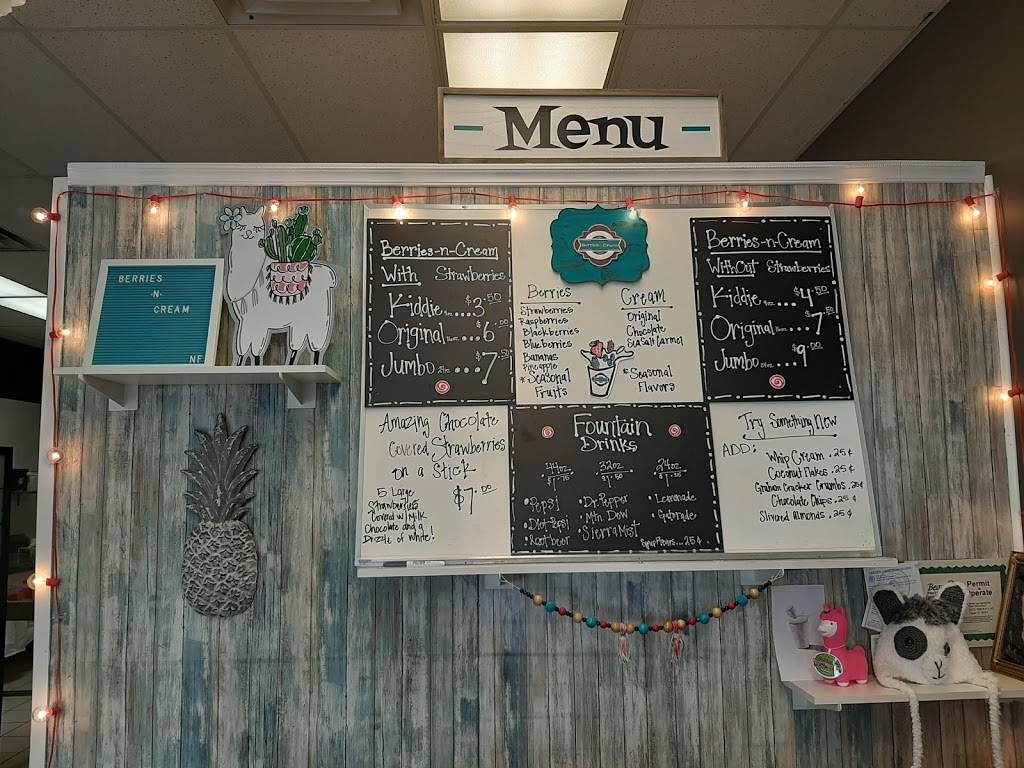 Menu
BERRIES
-N-
CREAM
NF
Berries-n-Cream
With Strawberries
Kiddie 9oz. ... $3.50
Original 16oz. ... $6.00
Jumbo 24oz. ... $7.50
Berries
Strawberries
Raspberries
Blackberries
Blueberries
Bananas
Pineapple
*Seasonal
Fruits
Cream
Original
Chocolate
Sea Salt Carmel
*Seasonal
Flavors
Berries-n-Cream
Without Strawberries
Kiddie 9oz. ... $4.50
Original 16oz. .... $7.
Jumbo 24oz. ... $9.00
Amazing Chocolate
Covered Strawberries
on a Stick
$7.00
5 Large
Strawberries
Covered w/ Milk
Chocolate and a
Drizzle of white!
Fountain
Drinks
44oz
$1.75
32oz
$1.50
24oz
• Pepsi
• Diet Pepsi
• Root beer
• Dr. Pepper
• Mtn. Dew
• Sierra Mist
• Lemonade
• Gatorade
25¢
Try Something New
ADD:
Whip Cream .25¢
Coconut Flakes .25¢
Graham Cracker Crumbs .25¢
Chocolate Chips .25¢
Slivared Almonds .25¢
Permit
Operate